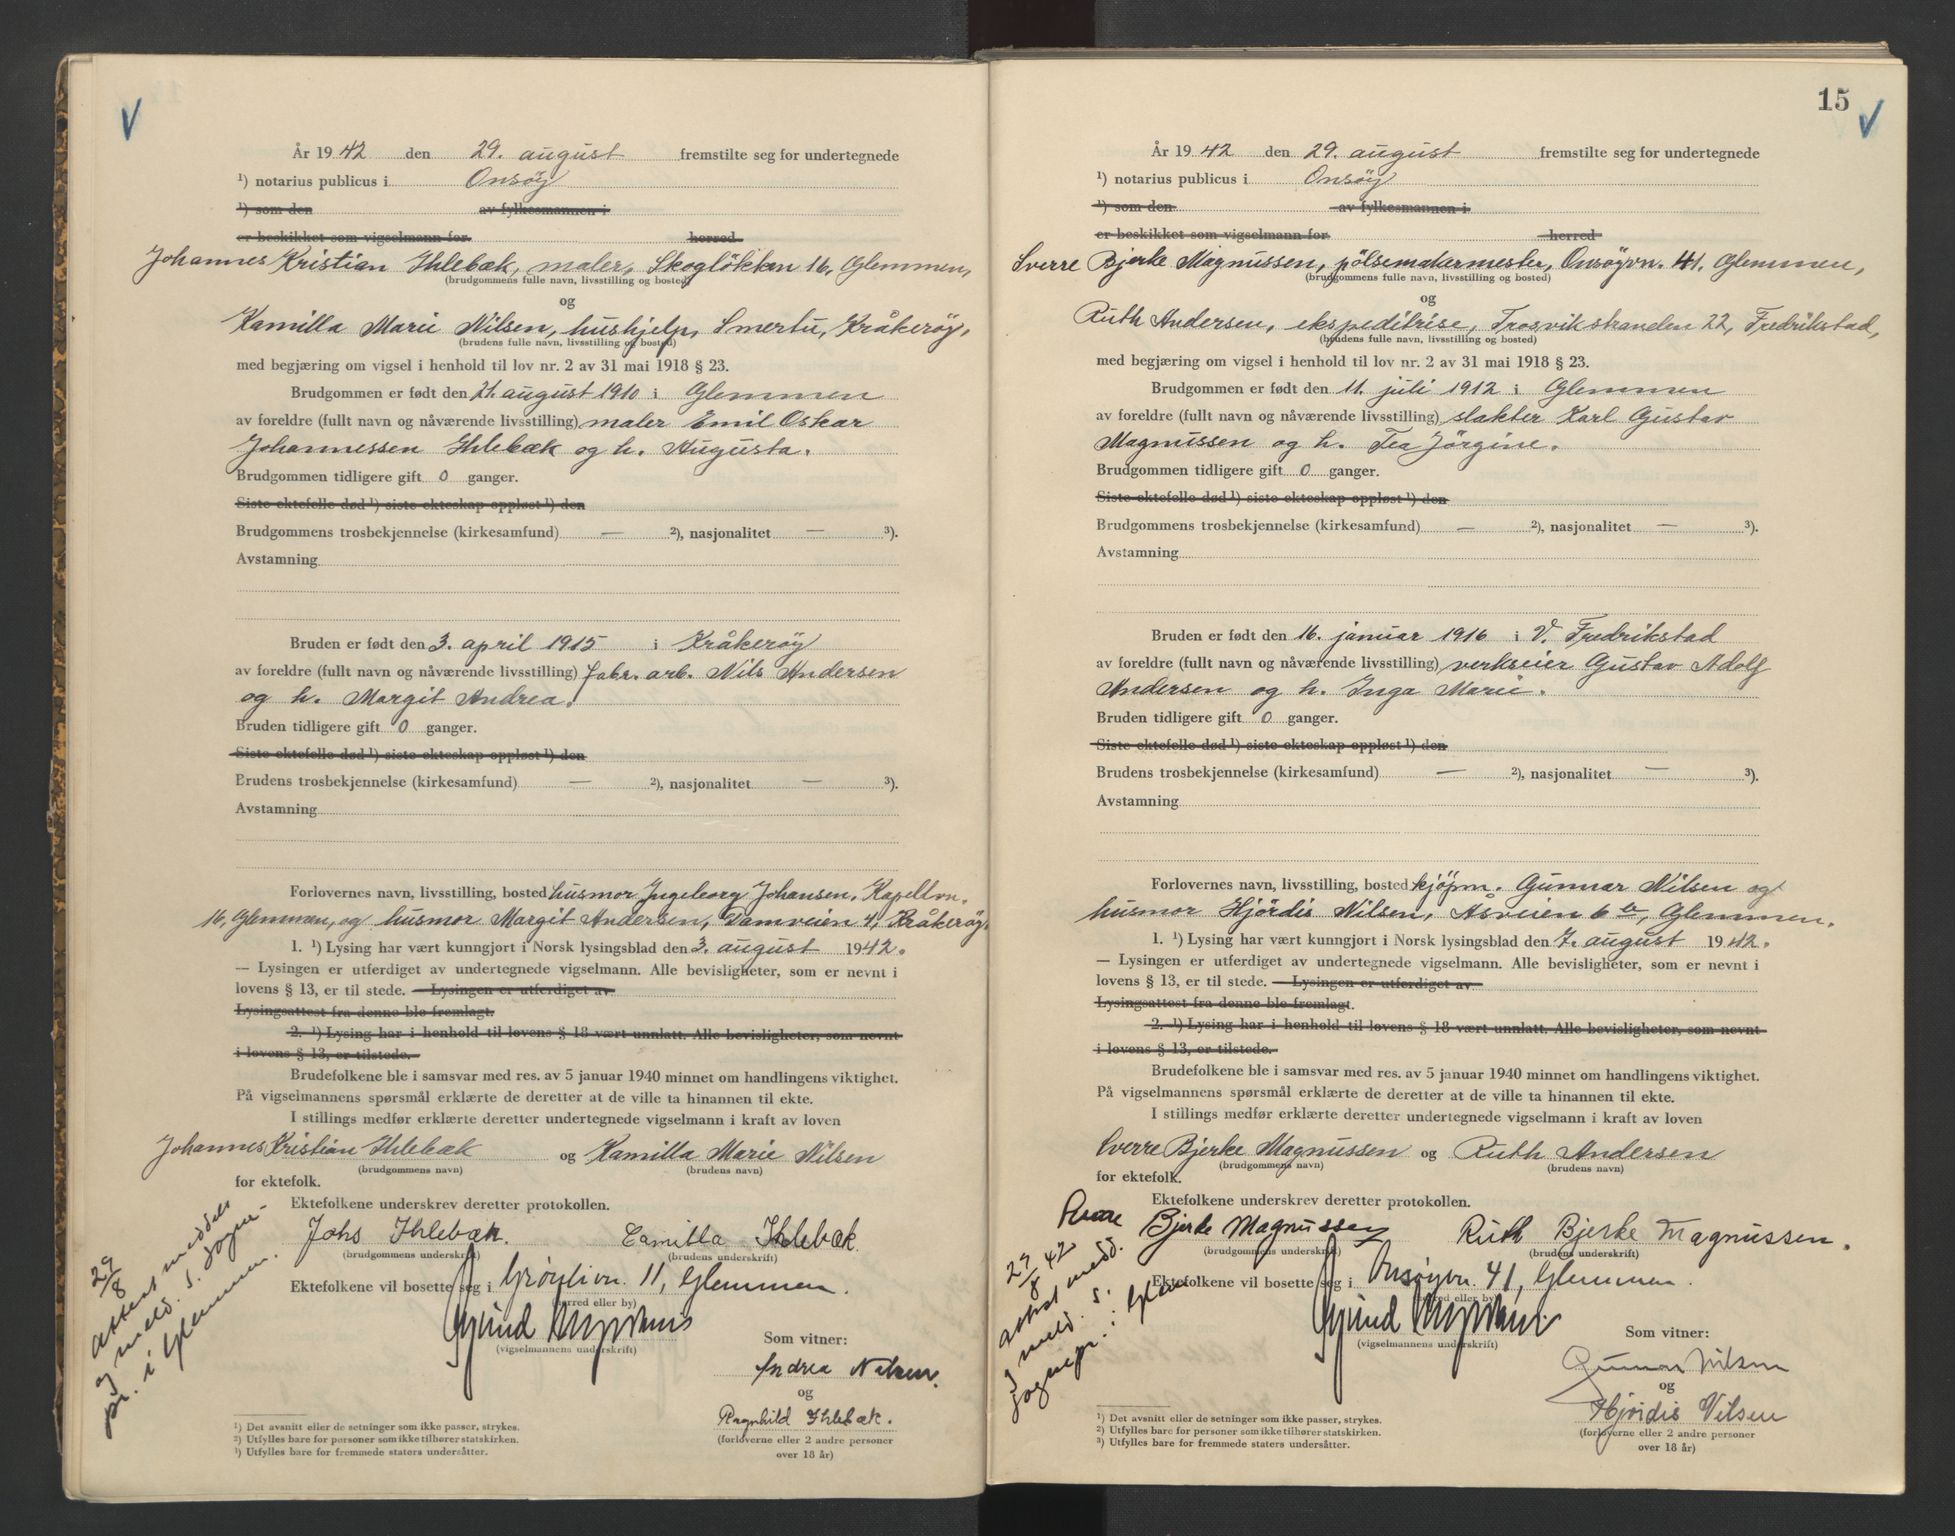 År 1942 den 29. august fremstilte seg for undertegnede
¹) notarius publicus i Onsöy
¹) som den av fylkesmannen i
er beskikket som vigselmann for herred
Johannes Kristian Ihlebæk, maler, Skoglökken 16, Glemmen,
(brudgommens fulle navn, livsstilling og bosted)
og
Kamilla Marie Nilsen, hushjelp, Smertu, Kråkeröy,
(brudens fulle navn, livsstilling og bosted)
med begjæring om vigsel i henhold til lov nr. 2 av 31 mai 1918 § 23.
Brudgommen er født den 21. august 1910 i Glemmen
av foreldre (fullt navn og nåværende livsstilling) maler Emil Oskar
Johannessen Ihlebæk og h. Augusta.
Brudgommen tidligere gift 0 ganger.
Siste ektefelle død ¹) siste ekteskap oppløst ¹) den
Brudgommens trosbekjennelse (kirkesamfund) — ²), nasjonalitet — ³).
Avstamning
Bruden er født den 3. april 1915 i Kråkeröy
av foreldre (fullt navn og nåværende livsstilling) fabr. arb. Nils Andersen
og h. Margit Andrea.
Bruden tidligere gift 0 ganger.
Siste ektefelle død ¹) siste ekteskap oppløst ¹) den
Brudens trosbekjennelse (kirkesamfund) — ²), nasjonalitet — ³).
Avstamning
Forlovernes navn, livsstilling, bosted husmor Ingeborg Johansen, Kapellvn.
16, Glemmen, og husmor Margit Andersen, Damveien 4, Kråkeröy.
1. ¹) Lysing har vært kunngjort i Norsk lysingsblad den 3. august 1942.
— Lysingen er utferdiget av undertegnede vigselmann. Alle bevisligheter, som er nevnt i
lovens § 13, er til stede. — Lysingen er utferdiget av
Lysingsattest fra denne ble fremlagt.
2. ¹) Lysing har i henhold til lovens § 18 vært unnlatt. Alle bevisligheter, som nevnt
i lovens § 13, er tilstede.
Brudefolkene ble i samsvar med res. av 5 januar 1940 minnet om handlingens viktighet.
På vigselmannens spørsmål erklærte de deretter at de ville ta hinannen til ekte.
I stillings medfør erklærte deretter undertegnede vigselmann i kraft av loven
Johannes Kristian Ihlebæk og Kamilla Marie Nilsen
(brudgommens navn) (brudens navn)
for ektefolk.
Ektefolkene underskrev deretter protokollen.
Johs Ihlebæk. Camilla Ihlebæk.
(brudgommens underskrift) (brudens underskrift)
Ektefolkene vil bosette seg i Grøylivn. 11, Glemmen.
(herred eller by)
(vigselmannens underskrift)
Som vitner:
Andrea Nilsen.
og
Ragnhild Ihlebæk.
(forloverne eller 2 andre personer
over 18 år)
29/8
attest meddelt
og meld. s. sogne-
pr. i Glemmen.
¹) Det avsnitt eller de setninger som ikke passer, strykes.
²) Utfylles bare for personer som ikke tilhører statskirken.
³) Utfylles bare for fremmede staters undersåtter.
15
År 1942 den 29. august fremstilte seg for undertegnede
¹) notarius publicus i Onsöy
¹) som den av fylkesmannen i
er beskikket som vigselmann for herred
Sverre Bjerke Magnussen, pölsemakermester, Onsöyvn. 41. Glemmen,
(brudgommens fulle navn, livsstilling og bosted)
og
Ruth Andersen, ekspeditrise, Trosvikstranden 22, Fredrikstad,
(brudens fulle navn, livsstilling og bosted)
med begjæring om vigsel i henhold til lov nr. 2 av 31 mai 1918 § 23.
Brudgommen er født den 11. juli 1912 i Glemmen
av foreldre (fullt navn og nåværende livsstilling) slakter Karl Gustav
Magnussen og h. Tea Jörgine.
Brudgommen tidligere gift 0 ganger.
Siste ektefelle død ¹) siste ekteskap oppløst ¹) den
Brudgommens trosbekjennelse (kirkesamfund) — ²), nasjonalitet — ³).
Avstamning
Bruden er født den 16. januar 1916 i V. Fredrikstad
av foreldre (fullt navn og nåværende livsstilling) verkseier Gustav Adolf
Andersen og h. Inga Marie.
Bruden tidligere gift 0 ganger.
Siste ektefelle død ¹) siste ekteskap oppløst ¹) den
Brudens trosbekjennelse (kirkesamfund) — ²), nasjonalitet — ³).
Avstamning
Forlovernes navn, livsstilling, bosted kjöpm. Gunnar Nilsen og
husmor Hjördis Nilsen, Åsveien 6 b, Glemmen.
1. ¹) Lysing har vært kunngjort i Norsk lysingsblad den 7. august 1942.
— Lysingen er utferdiget av undertegnede vigselmann. Alle bevisligheter, som er nevnt i
lovens § 13, er til stede. — Lysingen er utferdiget av
Lysingsattest fra denne ble fremlagt.
2. ¹) Lysing har i henhold til lovens § 18 vært unnlatt. Alle bevisligheter, som nevnt
i lovens § 13, er tilstede.
Brudefolkene ble i samsvar med res. av 5 januar 1940 minnet om handlingens viktighet.
På vigselmannens spørsmål erklærte de deretter at de ville ta hinannen til ekte.
I stillings medfør erklærte deretter undertegnede vigselmann i kraft av loven
Sverre Bjerke Magnussen og Ruth Andersen
(brudgommens navn) (brudens navn)
for ektefolk.
Ektefolkene underskrev deretter protokollen.
Sverre Bjerke Magnussen Ruth Bjerke Magnussen.
(brudgommens underskrift) (brudens underskrift)
Ektefolkene vil bosette seg i Onsøyvn. 41, Glemmen.
(herred eller by)
(vigselmannens underskrift)
Som vitner:
Gunnar Nilsen
og
Hjørdis Nilsen
(forloverne eller 2 andre personer
over 18 år)
29/8 42
attest medd.
og meld. s.
sognepr. i Glem
¹) Det avsnitt eller de setninger som ikke passer, strykes.
²) Utfylles bare for personer som ikke tilhører statskirken.
³) Utfylles bare for fremmede staters undersåtter.